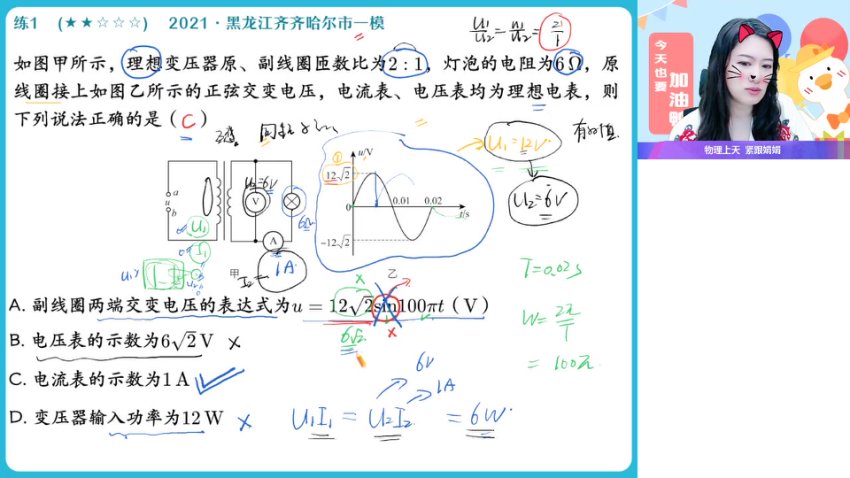 练1 (★★☆☆☆) 2021·黑龙江齐齐哈尔市一模
U₁/U₂=n₁/n₂=2/1
如图甲所示，理想变压器原、副线圈匝数比为2:1，灯泡的电阻为6Ω，原
线圈接上如图乙所示的正弦交变电压，电流表、电压表均为理想电表，则
下列说法正确的是（C）
U₁=12V
有效值
U₂=6V
a
u
b
U₂=6V
V
A
6Ω
U₁
I₁
甲
I₂=1A
① u/V
12√2
0
0.01 0.02
t/s
-12√2
乙
T=0.02s
W=2π/T
=100π
A. 副线圈两端交变电压的表达式为u=12√2sin100πt（V）
6√2
B. 电压表的示数为6√2V ×
C. 电流表的示数为1A
6V
1A
D. 变压器输入功率为12W ×
U₁I₁=U₂I₂=6W
今天也要
加油
物理上天 紧跟娟娟